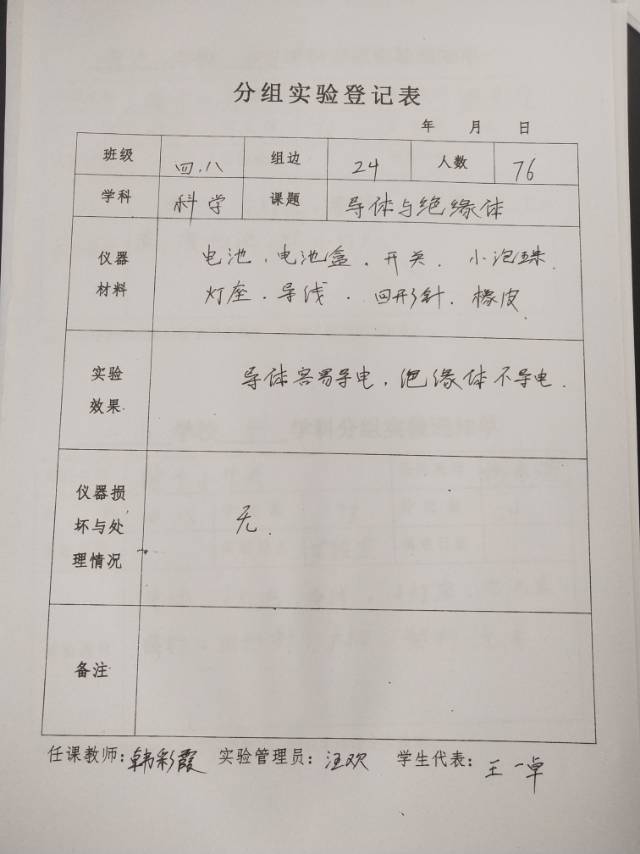 分组实验登记表
年 月 日
班级 四.八 组边 24 人数 76
学科 科学 课题 导体与绝缘体
仪器材料 电池、电池盒．开关．小泡珠．
灯座．导线．回形针．橡皮
实验效果 导体容易导电，绝缘体不导电．
仪器损坏与处理情况 无．
备注
任课教师：韩彩霞 实验管理员：汪欢 学生代表：王一卓